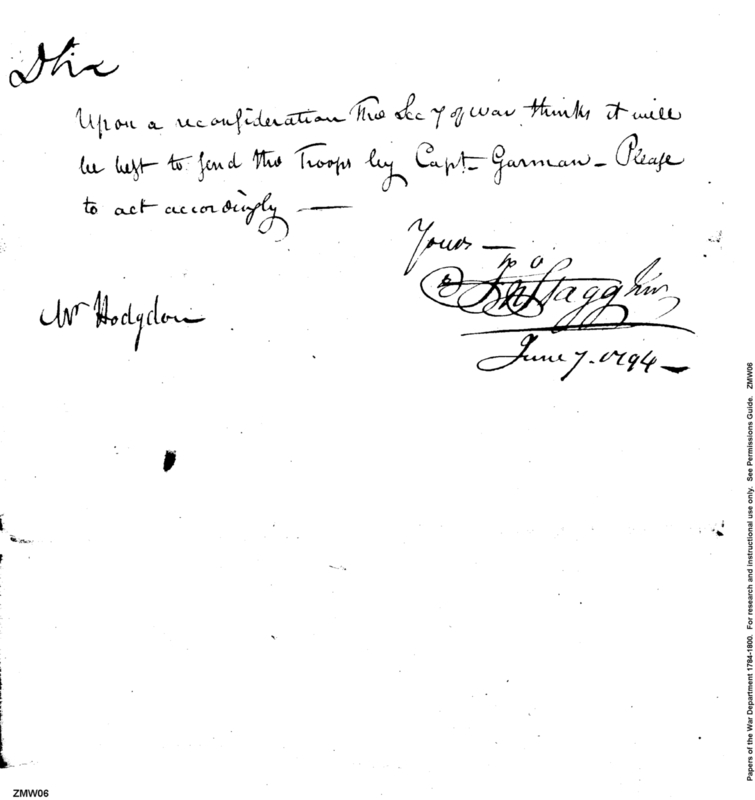 D Sir
Upon a reconsideration The Secy of war thinks it will
be best to send the Troops by Capt. Garman – Please
to act accordingly —
Yours —
Jno Stagg Jun
June 7. 1794 —
Mr Hodgdon
ZMW06
Papers of the War Department 1784-1800. For research and instructional use only. See Permissions Guide. ZMW06